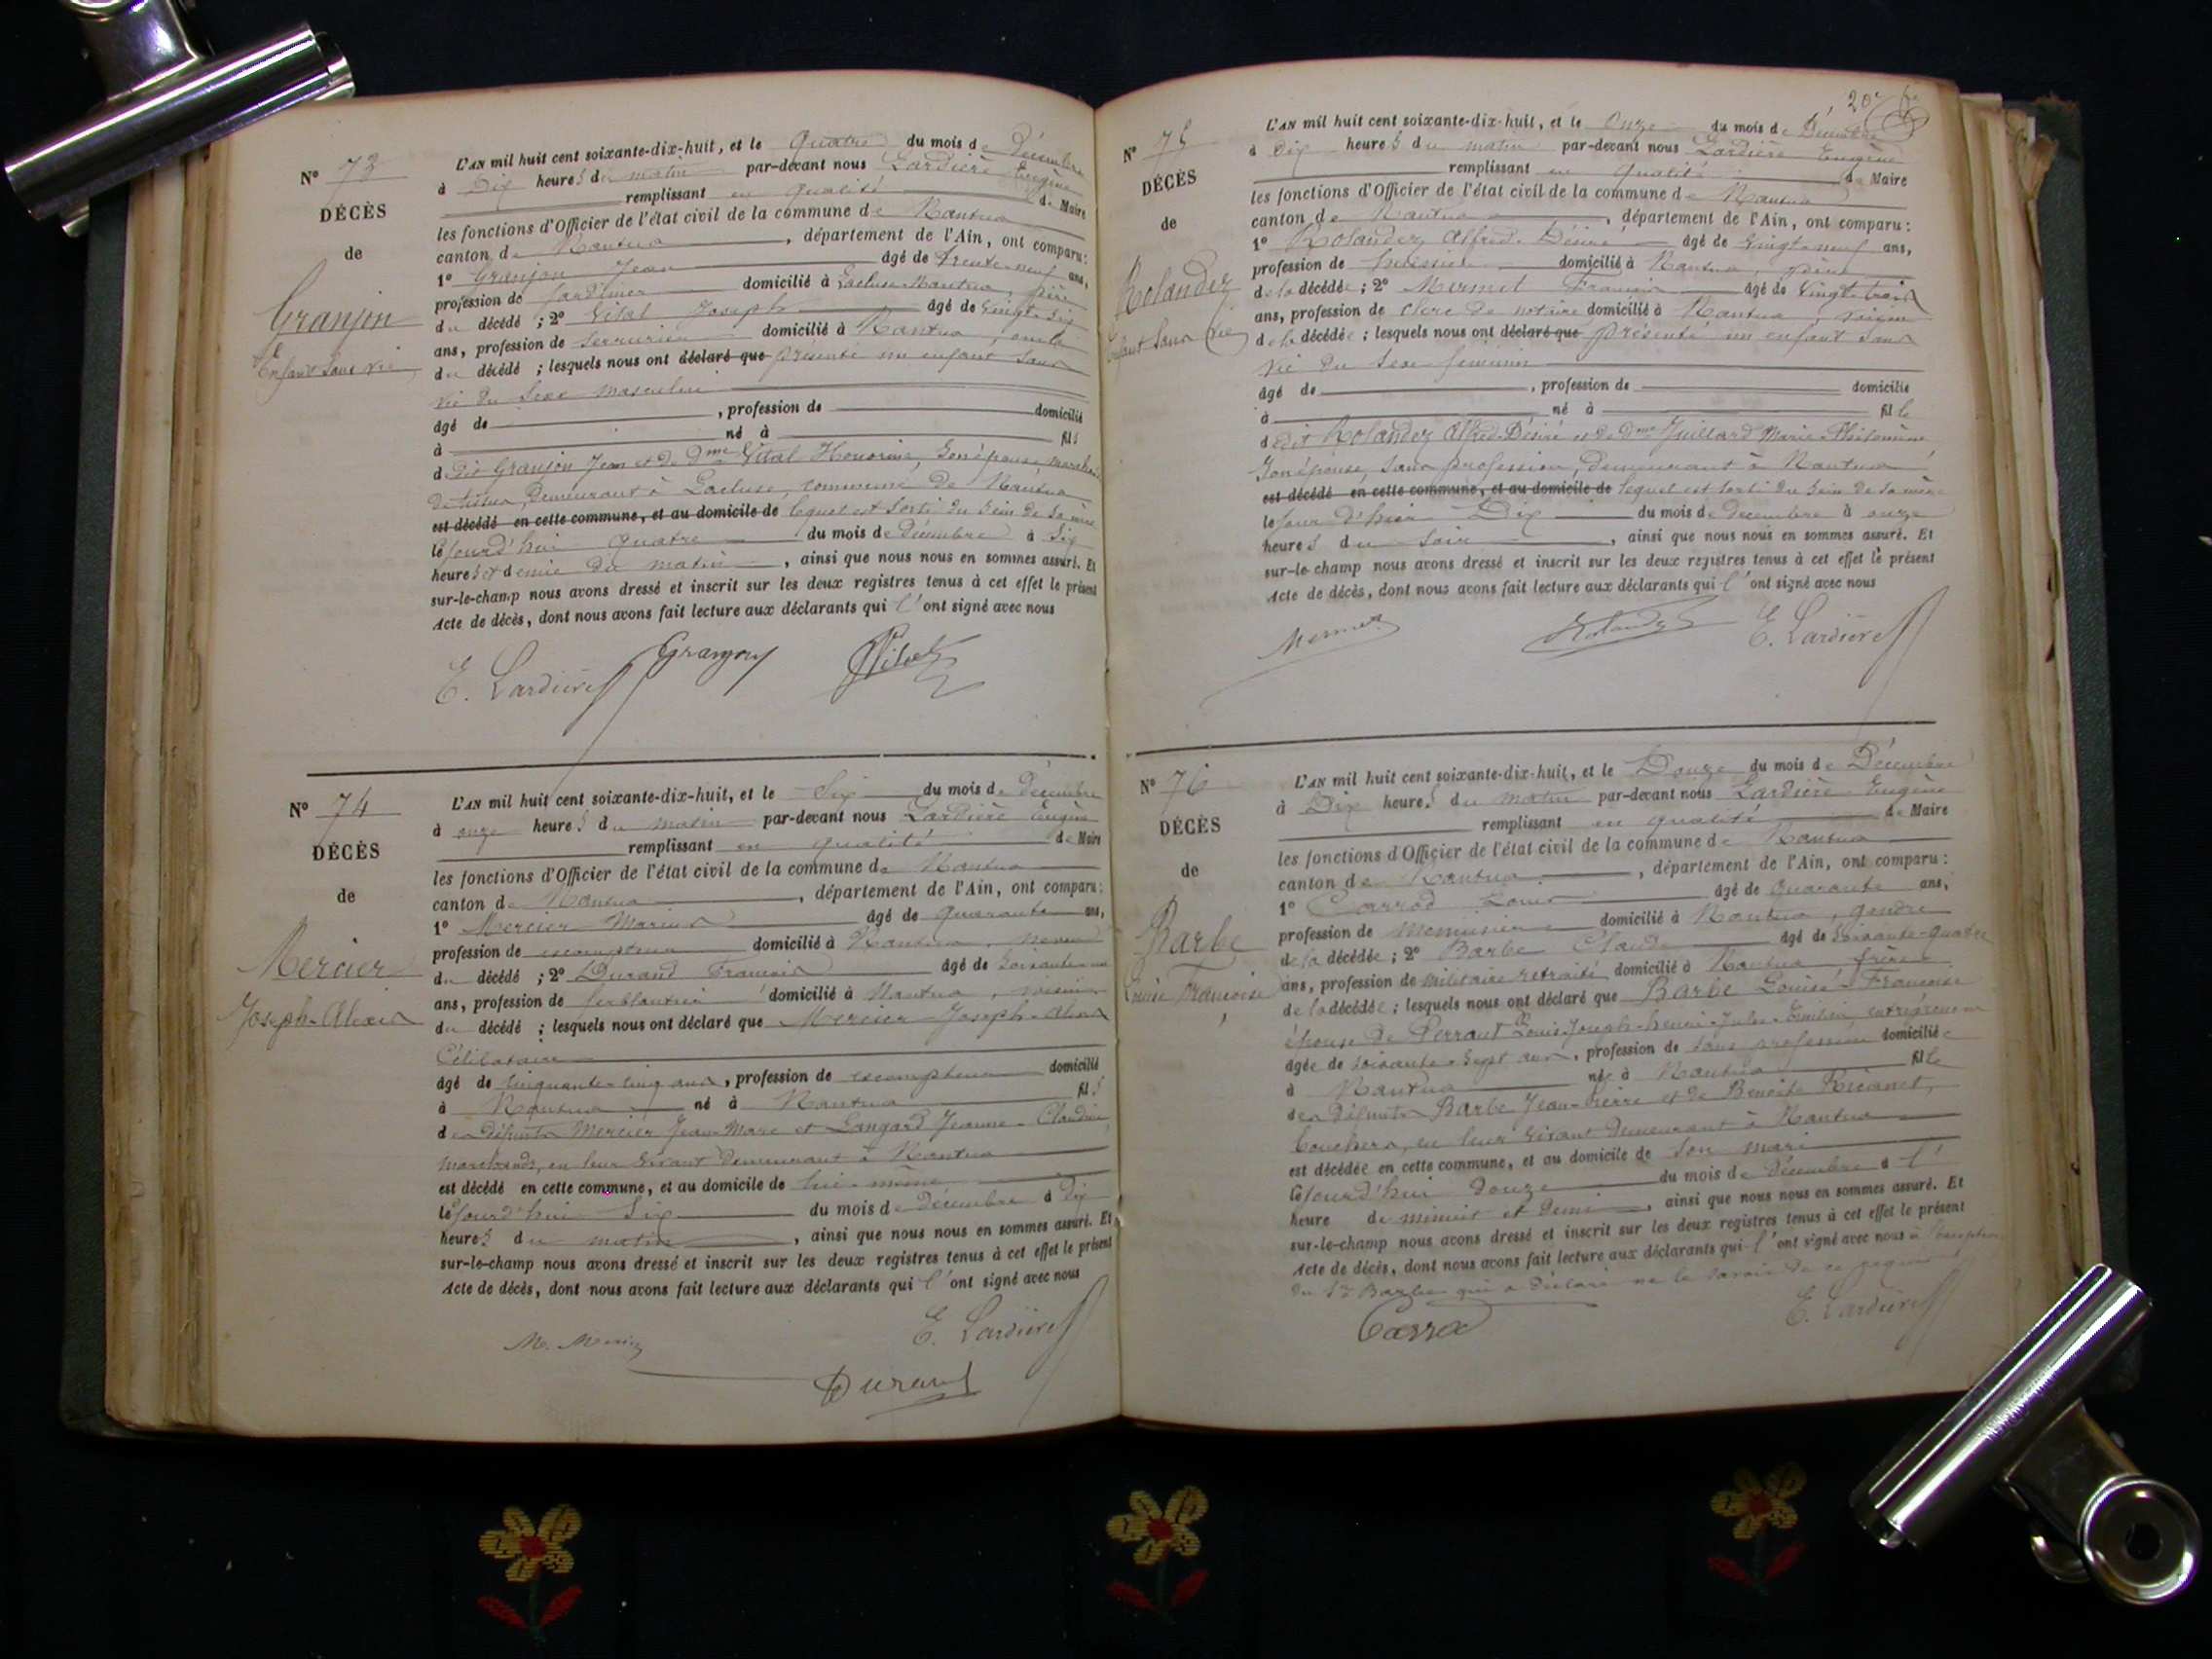 N° 73
DÉCÈS
de
Granjon
Enfant sans vie
L'AN mil huit cent soixante-dix-huit, et le Quatre du mois de Décembre
à Dix heures du matin par-devant nous Lardière Eugène
remplissant en qualité de Maire
les fonctions d'Officier de l'état civil de la commune de Nantua
canton de Nantua, département de l'Ain, ont comparu:
1° Granjon Jean âgé de trente-neuf ans,
profession de Jardinier domicilié à Lacluse-Nantua, père
du décédé; 2° Vital Joseph âgé de vingt-six
ans, profession de Serrurier domicilié à Nantua, oncle
du décédé; lesquels nous ont déclaré que présenté un enfant sans
vie du sexe masculin
âgé de, profession de domicilié
à né à fils
de dit Granjon Jean et de Dme Vital Honorine, son épouse, marchands
de tissus, demeurant à Lacluse, commune de Nantua
est décédé en cette commune, et au domicile de lequel est sorti du sein de sa mère
le jourd'hui quatre du mois de Décembre à six
heures et demie du matin, ainsi que nous nous en sommes assuré. Et
sur-le-champ nous avons dressé et inscrit sur les deux registres tenus à cet effet le présent
Acte de décès, dont nous avons fait lecture aux déclarants qui l'ont signé avec nous
E. Lardière Granjon Vital
N° 74
DÉCÈS
de
Mercier
Joseph-Alexis
L'AN mil huit cent soixante-dix-huit, et le Six du mois de décembre
à onze heures du matin par-devant nous Lardière Eugène
remplissant en qualité de Maire
les fonctions d'Officier de l'état civil de la commune de Nantua
canton de Nantua, département de l'Ain, ont comparu:
1° Mercier Marius âgé de quarante ans,
profession de escompteur domicilié à Nantua, neveu
du décédé; 2° Durand François âgé de soixante-un
ans, profession de ferblantier domicilié à Nantua, voisin
du décédé; lesquels nous ont déclaré que Mercier Joseph-Alexis
Célibataire
âgé de cinquante-cinq ans, profession de escompteur domicilié
à Nantua né à Nantua fils
des défunts Mercier Jean-Marc et Langard Jeanne-Claudine,
marchands, en leur vivant demeurant à Nantua
est décédé en cette commune, et au domicile de lui-même
le jourd'hui Six du mois de décembre à dix
heures du matin, ainsi que nous nous en sommes assuré. Et
sur-le-champ nous avons dressé et inscrit sur les deux registres tenus à cet effet le présent
Acte de décès, dont nous avons fait lecture aux déclarants qui l'ont signé avec nous
E. Lardière
Durand
N° 75
DÉCÈS
de
Rolandez
Enfant sans vie
L'AN mil huit cent soixante-dix-huit, et le Onze du mois de Décembre
à Dix heures du matin par-devant nous Lardière Eugène
remplissant en qualité de Maire
les fonctions d'Officier de l'état civil de la commune de Nantua
canton de Nantua, département de l'Ain, ont comparu:
1° Rolandez Alfred-Désiré âgé de vingt-neuf ans,
profession de huissier domicilié à Nantua, père
de la décédée; 2° Mermet François âgé de vingt-trois
ans, profession de clerc de notaire domicilié à Nantua, voisin
de la décédée; lesquels nous ont déclaré que présenté un enfant sans
vie du sexe féminin
âgé de, profession de domicilié
à né à fille
de dit Rolandez Alfred-Désiré et de Dme Juillard Marie-Philomène
son épouse, sans profession, demeurant à Nantua
est décédé en cette commune, et au domicile de lequel est sorti du sein de sa mère
le jour d'hier Dix du mois de décembre à onze
heures du soir, ainsi que nous nous en sommes assuré. Et
sur-le-champ nous avons dressé et inscrit sur les deux registres tenus à cet effet le présent
Acte de décès, dont nous avons fait lecture aux déclarants qui l'ont signé avec nous
Mermet Rolandez E. Lardière
N° 76
DÉCÈS
de
Barbe
Louise Françoise
L'AN mil huit cent soixante-dix-huit, et le Douze du mois de Décembre
à Dix heures du matin par-devant nous Lardière Eugène
remplissant en qualité de Maire
les fonctions d'Officier de l'état civil de la commune de Nantua
canton de Nantua, département de l'Ain, ont comparu:
1° Carrod Louis âgé de quarante ans,
profession de menuisier domicilié à Nantua, gendre
de la décédée; 2° Barbe Claude âgé de soixante-quatre
ans, profession de militaire retraité domicilié à Nantua frère
de la décédée; lesquels nous ont déclaré que Barbe Louise-Françoise
épouse de Perraut Louis-Joseph-henri-Jules-Emilien, entrepreneur
âgée de soixante-sept ans, profession de sans profession domiciliée
à Nantua née à Nantua fille
des défunts Barbe Jean-Pierre et de Benoite Ricanet,
bouchers, en leur vivant demeurant à Nantua
est décédée en cette commune, et au domicile de son mari
le jourd'hui douze du mois de décembre à l'
heure de minuit et demi, ainsi que nous nous en sommes assuré. Et
sur-le-champ nous avons dressé et inscrit sur les deux registres tenus à cet effet le présent
Acte de décès, dont nous avons fait lecture aux déclarants qui l'ont signé avec nous à l'exception
du Sr Barbe qui a déclaré ne le savoir de ce requis
E. Lardière